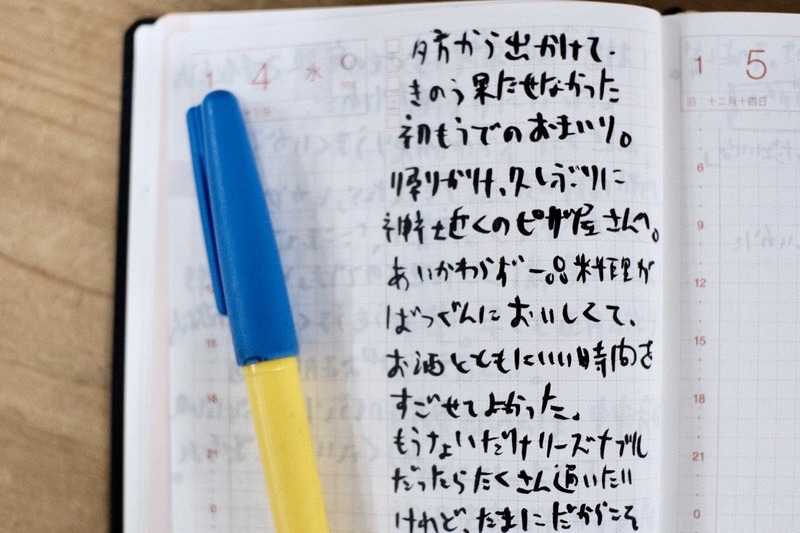 1 4 水
夕方から出かけて、
きのう果たせなかった
初もうでのおまいり。
帰りがけ、久しぶりに
神社近くのピザ屋さんへ。
あいかわらず一品料理が
ばつぐんにおいしくて、
お酒とともにいい時間を
すごせてよかった。
もうちょいだけリーズナブル
だったらたくさん通いたい
けれど、たまにだからこそ
1 5
旧:十二月十四日
6
9
12
15
18
21
0